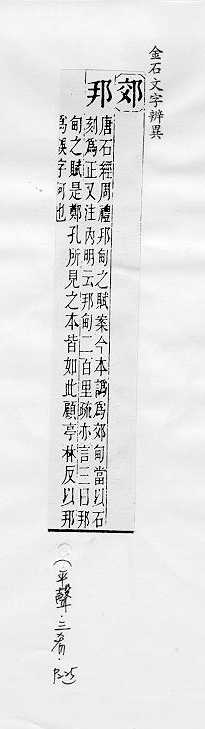 金石文字辨異
郊
邦
唐石經周禮邦甸之賦案今本譌爲郊甸當以石
刻爲正又注內明云邦甸二百里疏亦言三曰邦
甸之賦是鄭孔所見之本皆如此顧亭林反以邦
爲誤字何也
(平聲·三肴·P.25